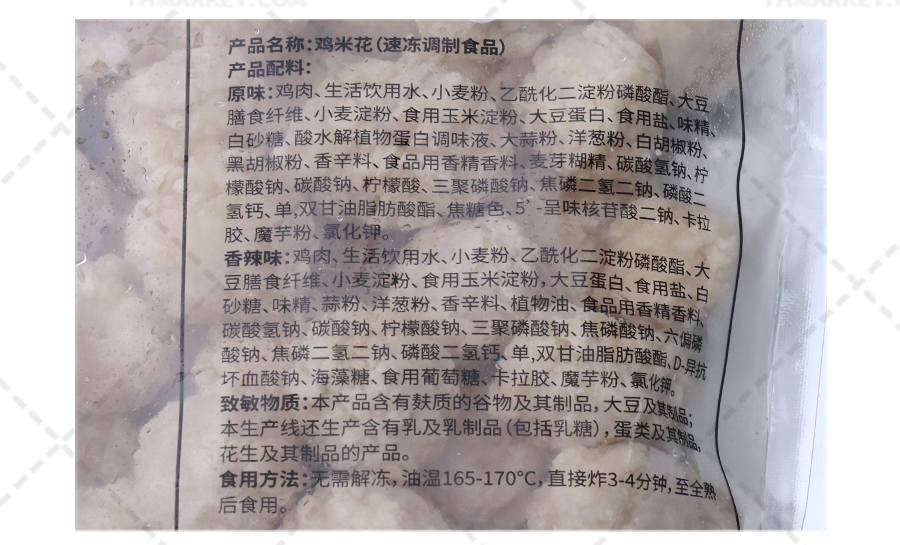 THMARKET.COM
THMARKET.COM
产品名称:鸡米花(速冻调制食品)
产品配料:
原味:鸡肉、生活饮用水、小麦粉、乙酰化二淀粉磷酸酯、大豆
膳食纤维、小麦淀粉、食用玉米淀粉、大豆蛋白、食用盐、味精、
白砂糖、酸水解植物蛋白调味液、大蒜粉、洋葱粉、白胡椒粉、
黑胡椒粉、香辛料、食品用香精香料、麦芽糊精、碳酸氢钠、柠
檬酸钠、碳酸钠、柠檬酸、三聚磷酸钠、焦磷二氢二钠、磷酸二
氢钙、单,双甘油脂肪酸酯、焦糖色、5’-呈味核苷酸二钠、卡拉
胶、魔芋粉、氯化钾。
香辣味:鸡肉、生活饮用水、小麦粉、乙酰化二淀粉磷酸酯、大
豆膳食纤维、小麦淀粉、食用玉米淀粉,大豆蛋白、食用盐、白
砂糖、味精、蒜粉、洋葱粉、香辛料、植物油、食品用香精香料、
碳酸氢钠、碳酸钠、柠檬酸钠、三聚磷酸钠、焦磷酸钠、六偏磷
酸钠、焦磷二氢二钠、磷酸二氢钙、单,双甘油脂肪酸酯、D-异抗
坏血酸钠、海藻糖、食用葡萄糖、卡拉胶、魔芋粉、氯化钾。
致敏物质:本产品含有麸质的谷物及其制品,大豆及其制品;
本生产线还生产含有乳及乳制品(包括乳糖),蛋类及其制品,
花生及其制品的产品。
食用方法:无需解冻,油温165-170℃,直接炸3-4分钟,至全熟
后食用。